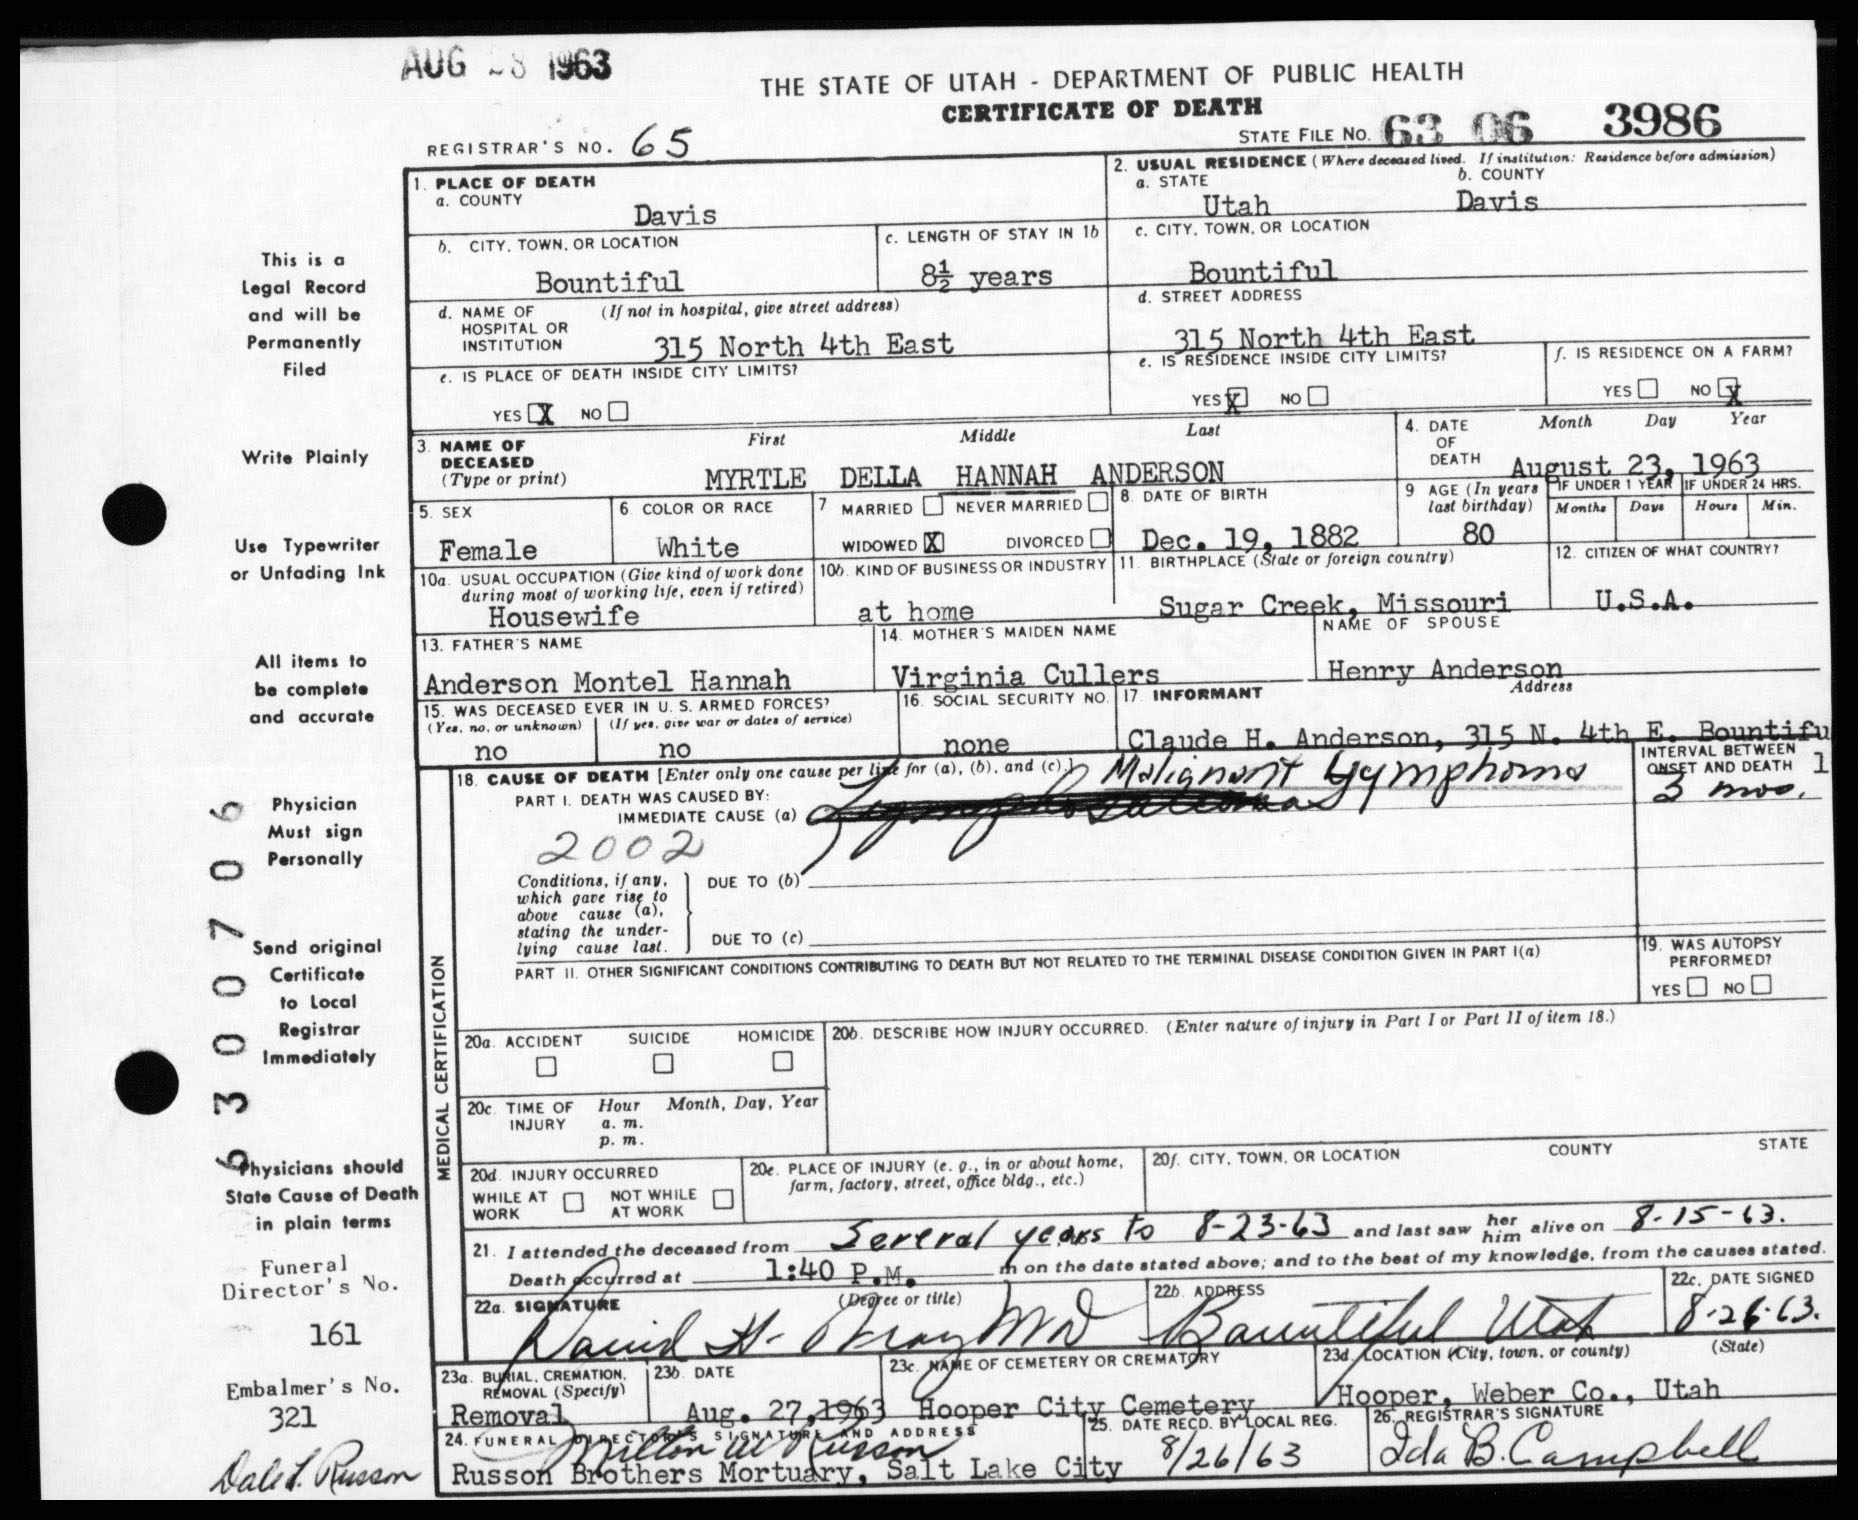 AUG 28 1963
THE STATE OF UTAH - DEPARTMENT OF PUBLIC HEALTH
CERTIFICATE OF DEATH
REGISTRAR'S NO. 65
STATE FILE NO. 63 06 3986
1. PLACE OF DEATH
a. COUNTY
Davis
2. USUAL RESIDENCE (Where deceased lived. If institution: Residence before admission)
a. STATE b. COUNTY
Utah Davis
b. CITY, TOWN, OR LOCATION
Bountiful
c. LENGTH OF STAY IN 1b
8½ years
c. CITY, TOWN, OR LOCATION
Bountiful
d. NAME OF HOSPITAL OR INSTITUTION (If not in hospital, give street address)
315 North 4th East
d. STREET ADDRESS
315 North 4th East
e. IS PLACE OF DEATH INSIDE CITY LIMITS?
YES X NO
e. IS RESIDENCE INSIDE CITY LIMITS?
YES X NO
f. IS RESIDENCE ON A FARM?
YES NO X
3. NAME OF DECEASED (Type or print)
First Middle Last
MYRTLE DELLA HANNAH ANDERSON
4. DATE OF DEATH Month Day Year
August 23, 1963
5. SEX
Female
6. COLOR OR RACE
White
7 MARRIED NEVER MARRIED
WIDOWED X DIVORCED
8. DATE OF BIRTH
Dec. 19, 1882
9 AGE (In years last birthday)
80
IF UNDER 1 YEAR IF UNDER 24 HRS.
Months Days Hours Min.
10a. USUAL OCCUPATION (Give kind of work done during most of working life, even if retired)
Housewife
10b. KIND OF BUSINESS OR INDUSTRY
at home
11. BIRTHPLACE (State or foreign country)
Sugar Creek, Missouri
12. CITIZEN OF WHAT COUNTRY?
U.S.A.
13. FATHER'S NAME
Anderson Montel Hannah
14. MOTHER'S MAIDEN NAME
Virginia Cullers
NAME OF SPOUSE
Henry Anderson
15. WAS DECEASED EVER IN U. S. ARMED FORCES?
(Yes, no, or unknown) (If yes, give war or dates of service)
no no
16. SOCIAL SECURITY NO.
none
17. INFORMANT Address
Claude H. Anderson, 315 N. 4th E. Bountifu
l
MEDICAL CERTIFICATION
18. CAUSE OF DEATH [Enter only one cause per line for (a), (b), and (c).]
PART I. DEATH WAS CAUSED BY:
IMMEDIATE CAUSE (a)
Malignant Lymphoma
INTERVAL BETWEEN ONSET AND DEATH
3 mos.
2002
Conditions, if any, which gave rise to above cause (a), stating the under-lying cause last.
DUE TO (b)
DUE TO (c)
PART II. OTHER SIGNIFICANT CONDITIONS CONTRIBUTING TO DEATH BUT NOT RELATED TO THE TERMINAL DISEASE CONDITION GIVEN IN PART I(a)
19. WAS AUTOPSY PERFORMED?
YES NO
20a. ACCIDENT SUICIDE HOMICIDE
20b. DESCRIBE HOW INJURY OCCURRED. (Enter nature of injury in Part I or Part II of item 18.)
20c. TIME OF INJURY Hour Month, Day, Year
a. m.
p. m.
20d. INJURY OCCURRED
WHILE AT WORK NOT WHILE AT WORK
20e. PLACE OF INJURY (e. g., in or about home, farm, factory, street, office bldg., etc.)
20f. CITY, TOWN, OR LOCATION COUNTY STATE
21. I attended the deceased from Several years to 8-23-63 and last saw her him alive on 8-15-63.
Death occurred at 1:40 P.M. m on the date stated above; and to the best of my knowledge, from the causes stated.
22a. SIGNATURE (Degree or title)
David H. MD
22b. ADDRESS
Bountiful Utah
22c. DATE SIGNED
8-26-63.
23a. BURIAL, CREMATION, REMOVAL (Specify)
Removal
23b. DATE
Aug. 27, 1963
23c. NAME OF CEMETERY OR CREMATORY
Hooper City Cemetery
23d. LOCATION (City, town, or county) (State)
Hooper, Weber Co., Utah
24. FUNERAL DIRECTOR'S SIGNATURE AND ADDRESS
Milton W Russon
Russon Brothers Mortuary, Salt Lake City
25. DATE RECD. BY LOCAL REG.
8/26/63
26. REGISTRAR'S SIGNATURE
Ida B. Campbell
This is a
Legal Record
and will be
Permanently
Filed
Write Plainly
Use Typewriter
or Unfading Ink
All items to
be complete
and accurate
Physician
Must sign
Personally
Send original
Certificate
to Local
Registrar
Immediately
Physicians should
State Cause of Death
in plain terms
6300706
Funeral
Director's No.
161
Embalmer's No.
321
Dale L. Russon